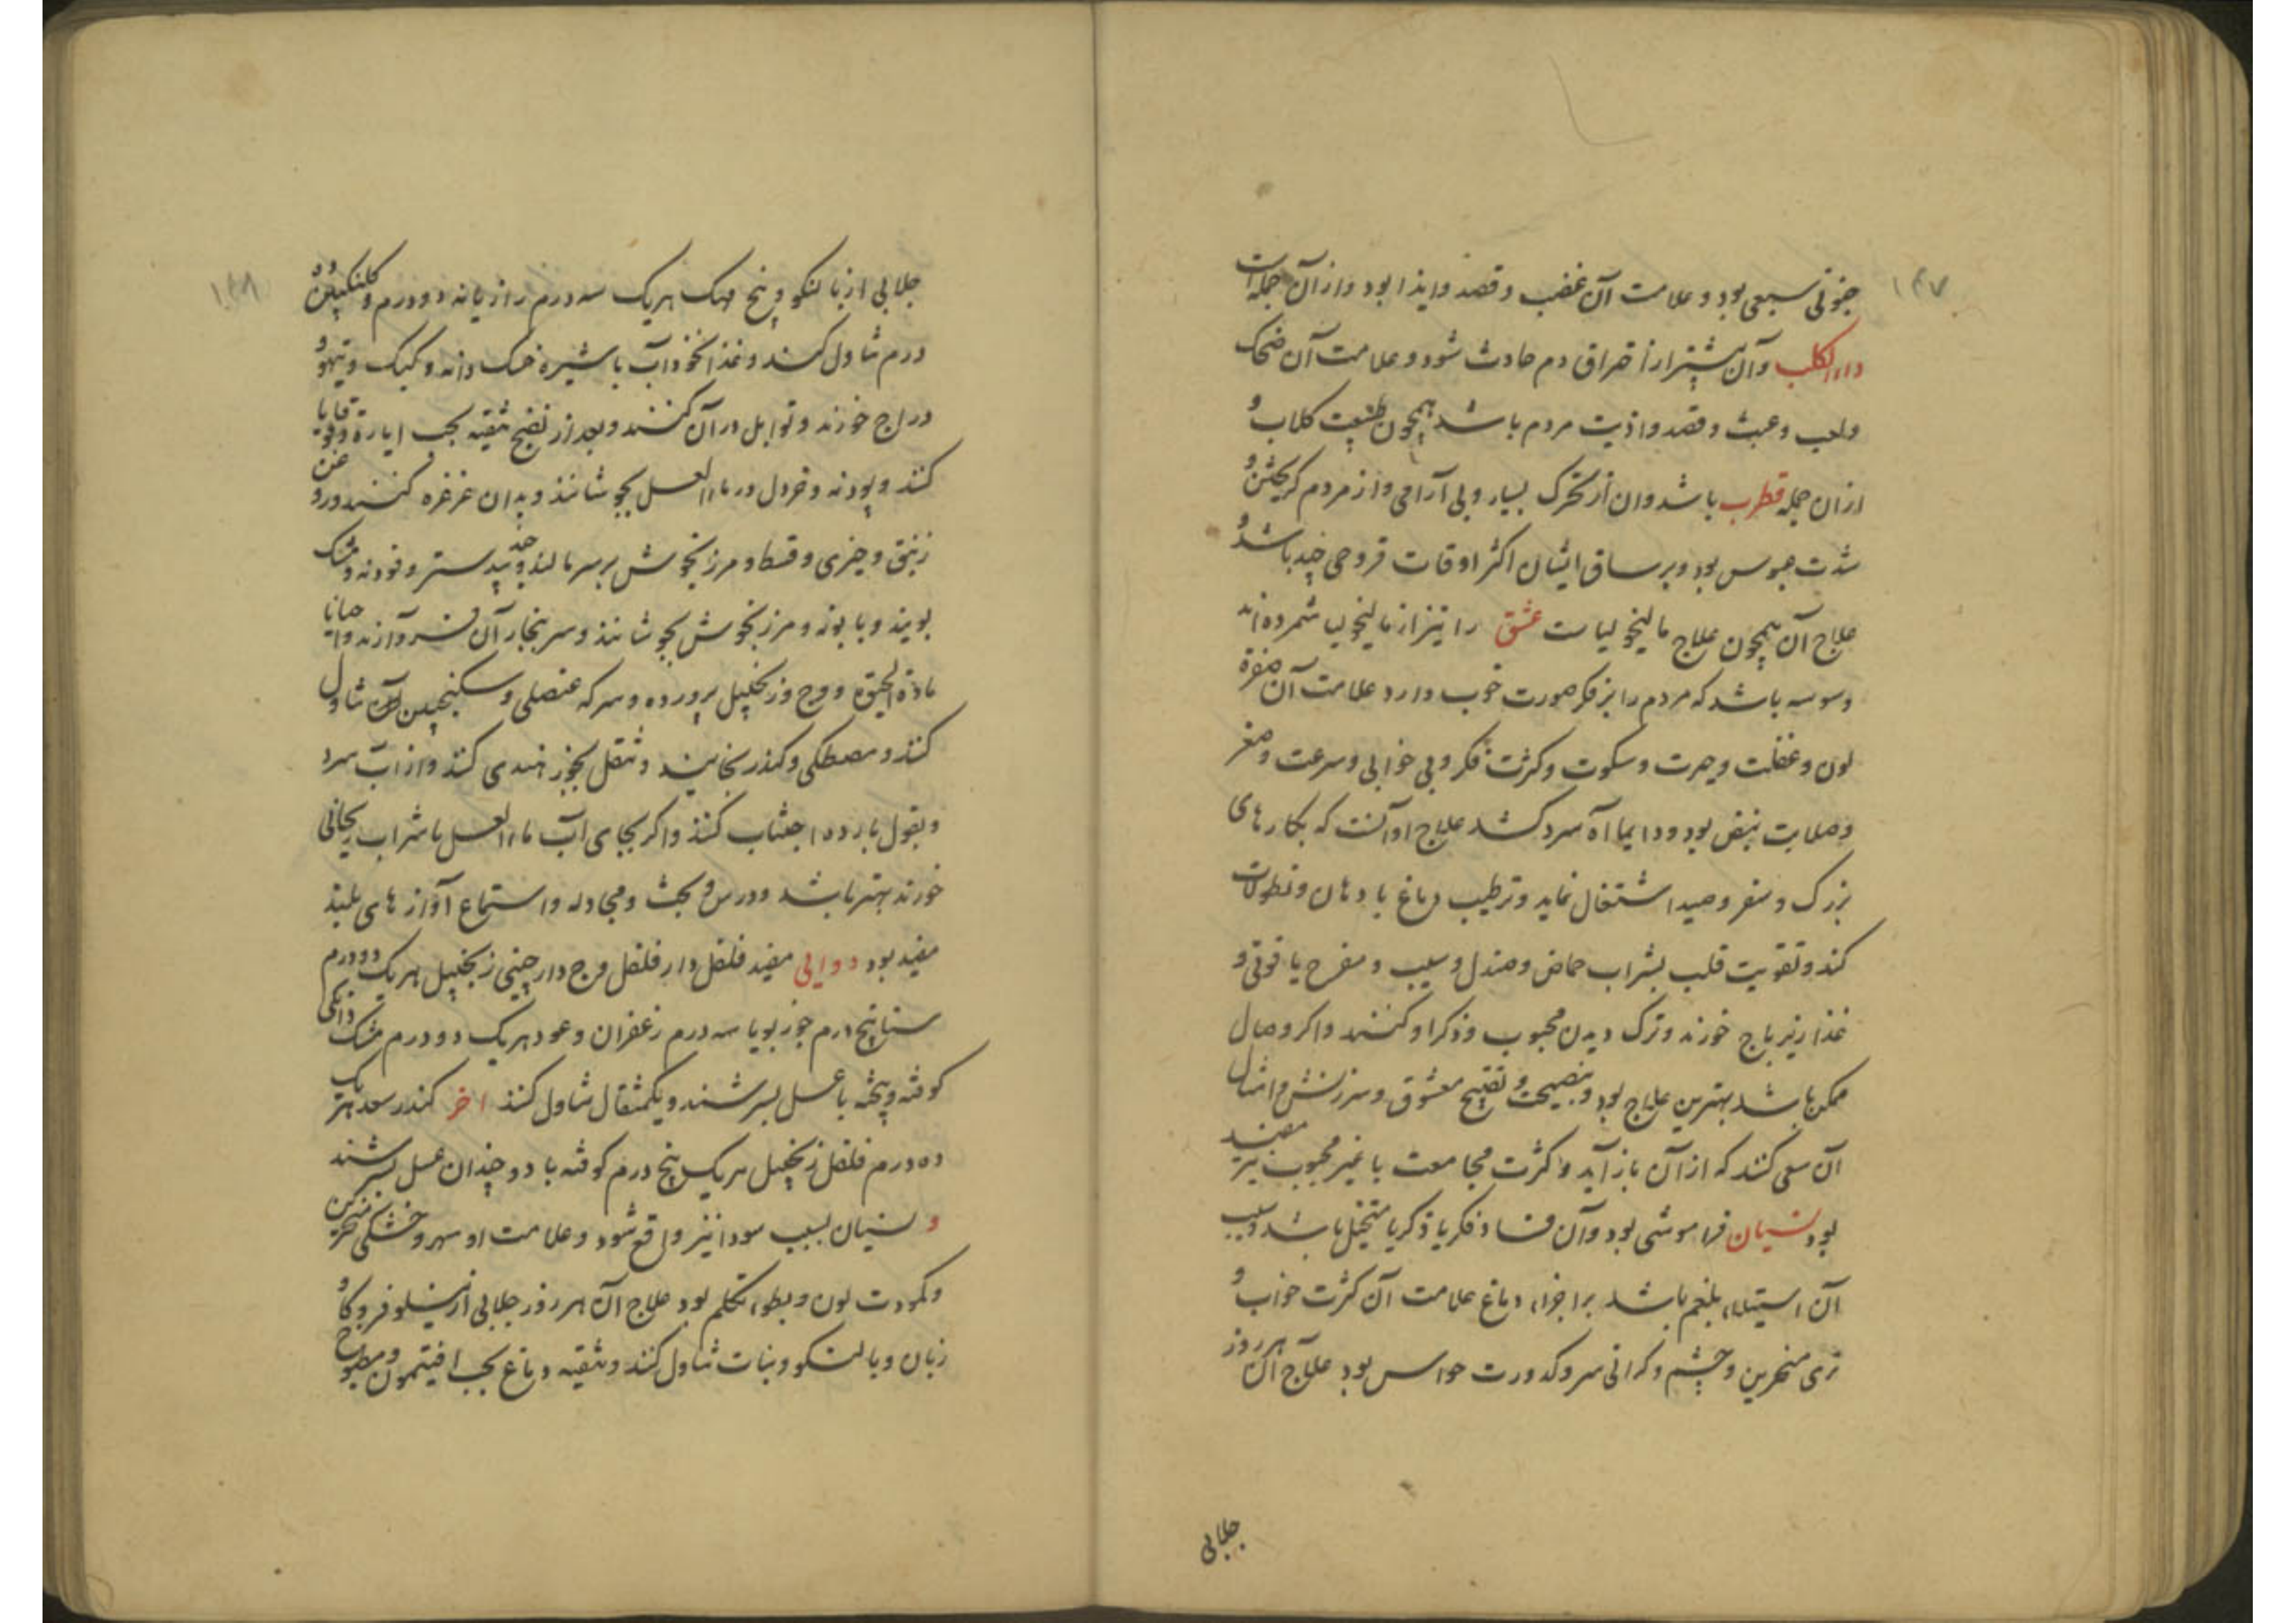 ۱۴۷
جنونی سبعی بود و علامت آن غضب و قصد و ایذا بود و از آن جمله است
داء الکلب و آن بیشتر از احتراق دم حادث شود و علامت آن ضحک
و لعب و عبث و قصد و اذیت مردم باشد همچون طبیعت کلاب و
از ان جمله قطرب باشد و ان از تحرک بسیار و بی آرامی و از مردم کریختن و
شدت عبوس بود و بر ساق ایشان اکثر اوقات قروحی چند باشد و
علاج آن همچون علاج مالیخولیاست عشق را نیز از مالیخولیا شمرده اند
وسوسه باشد که مردم را بر فکر صورت خوب دارد علامت آن صفرة
لون و غفلت و حیرت و سکوت و کثرت فکر و بی خوابی و سرعت و صغر
و صلابت نبض بود و دایما آه سرد کشد علاج او آنست که بکارهای
بزرک و سفر و صید اشتغال نماید و ترطیب دماغ بادهان و نطولات
کند و تقویت قلب بشراب حماض و صندل و سیب و مفرح یاقوتی و
غذا زیرباج خورند و ترک دیدن محبوب و ذکر او کنند و اکر وصال
ممکن باشد بهترین علاج بود و بنصیحت و تقبیح معشوق و سرزنش و امثال
آن سعی کنند که از آن باز آید و کثرت مجامعت با غیر محبوب نیز مفید
بود نسیان فراموشی بود و آن فساد فکر یا ذکر یا تخیل باشد و سبب
آن استیلاء بلغم باشد بر اجزاء دماغ علامت آن کثرت خواب و
تری منخرین و چشم و کرانی سر و کدورت حواس بود علاج آن هر روز
جلابی
۱۴۸
جلابی از بالنکو و بیخ مهک هر یک سه درم رازیانه دو درم و کلنکبین ده
درم تناول کنند و غذا نخوداب با شیره خسک دانه و کبک و تیهو و
دراج خورند و توابل در آن کنند و بعد از نضج تنقیه بحب ایارج و قوقایا
کنند و پودنه و خردل در ماء العسل بجوشانند و بدان غرغره کنند و روغن
زنبق و خیری و قسط و مرزنجوش بر سر مالند و جندبیدستر و فودنه و مشک
بویند و بابونه و مرزنجوش بجوشانند و سر ببخار آن فرو آرند و احیانا
مادة الحیوة و وج و زنجبیل پرورده و سرکه عنصلی و سکنجبین آن تناول
کنند و مصطکی و کندر بخایند و تنقل بجوز هندی کنند و از آب سرد
و بقول بارده اجتناب کنند و اکر بجای آب ماء العسل یا شراب ریحانی
خورند بهتر باشد و درس و بحث و مجادله و استماع آوازهای بلند
مفید بود دوایی مفید فلفل دارفلفل وج دارچینی زنجبیل هر یک دو درم
سنا پنج درم جوزبویا سه درم زعفران و عود هر یک دو درم مشک دانکی
کوفته و بیخته با عسل بسرشند و یکمثقال تناول کنند اخر کندر سعد هر یک
ده درم فلفل زنجبیل هر یک پنج درم کوفته با دو چندان عسل بسرشند
و نسیان بسبب سودا نیز واقع شود و علامت او سهر و خشکی منخرین
و کمودت لون و بطوء تکلم بود علاج آن هر روز جلابی از نیلوفر و کاو
زبان و بالنکو و نبات تناول کنند و تنقیه دماغ بحب افیتمون و مطبوخ